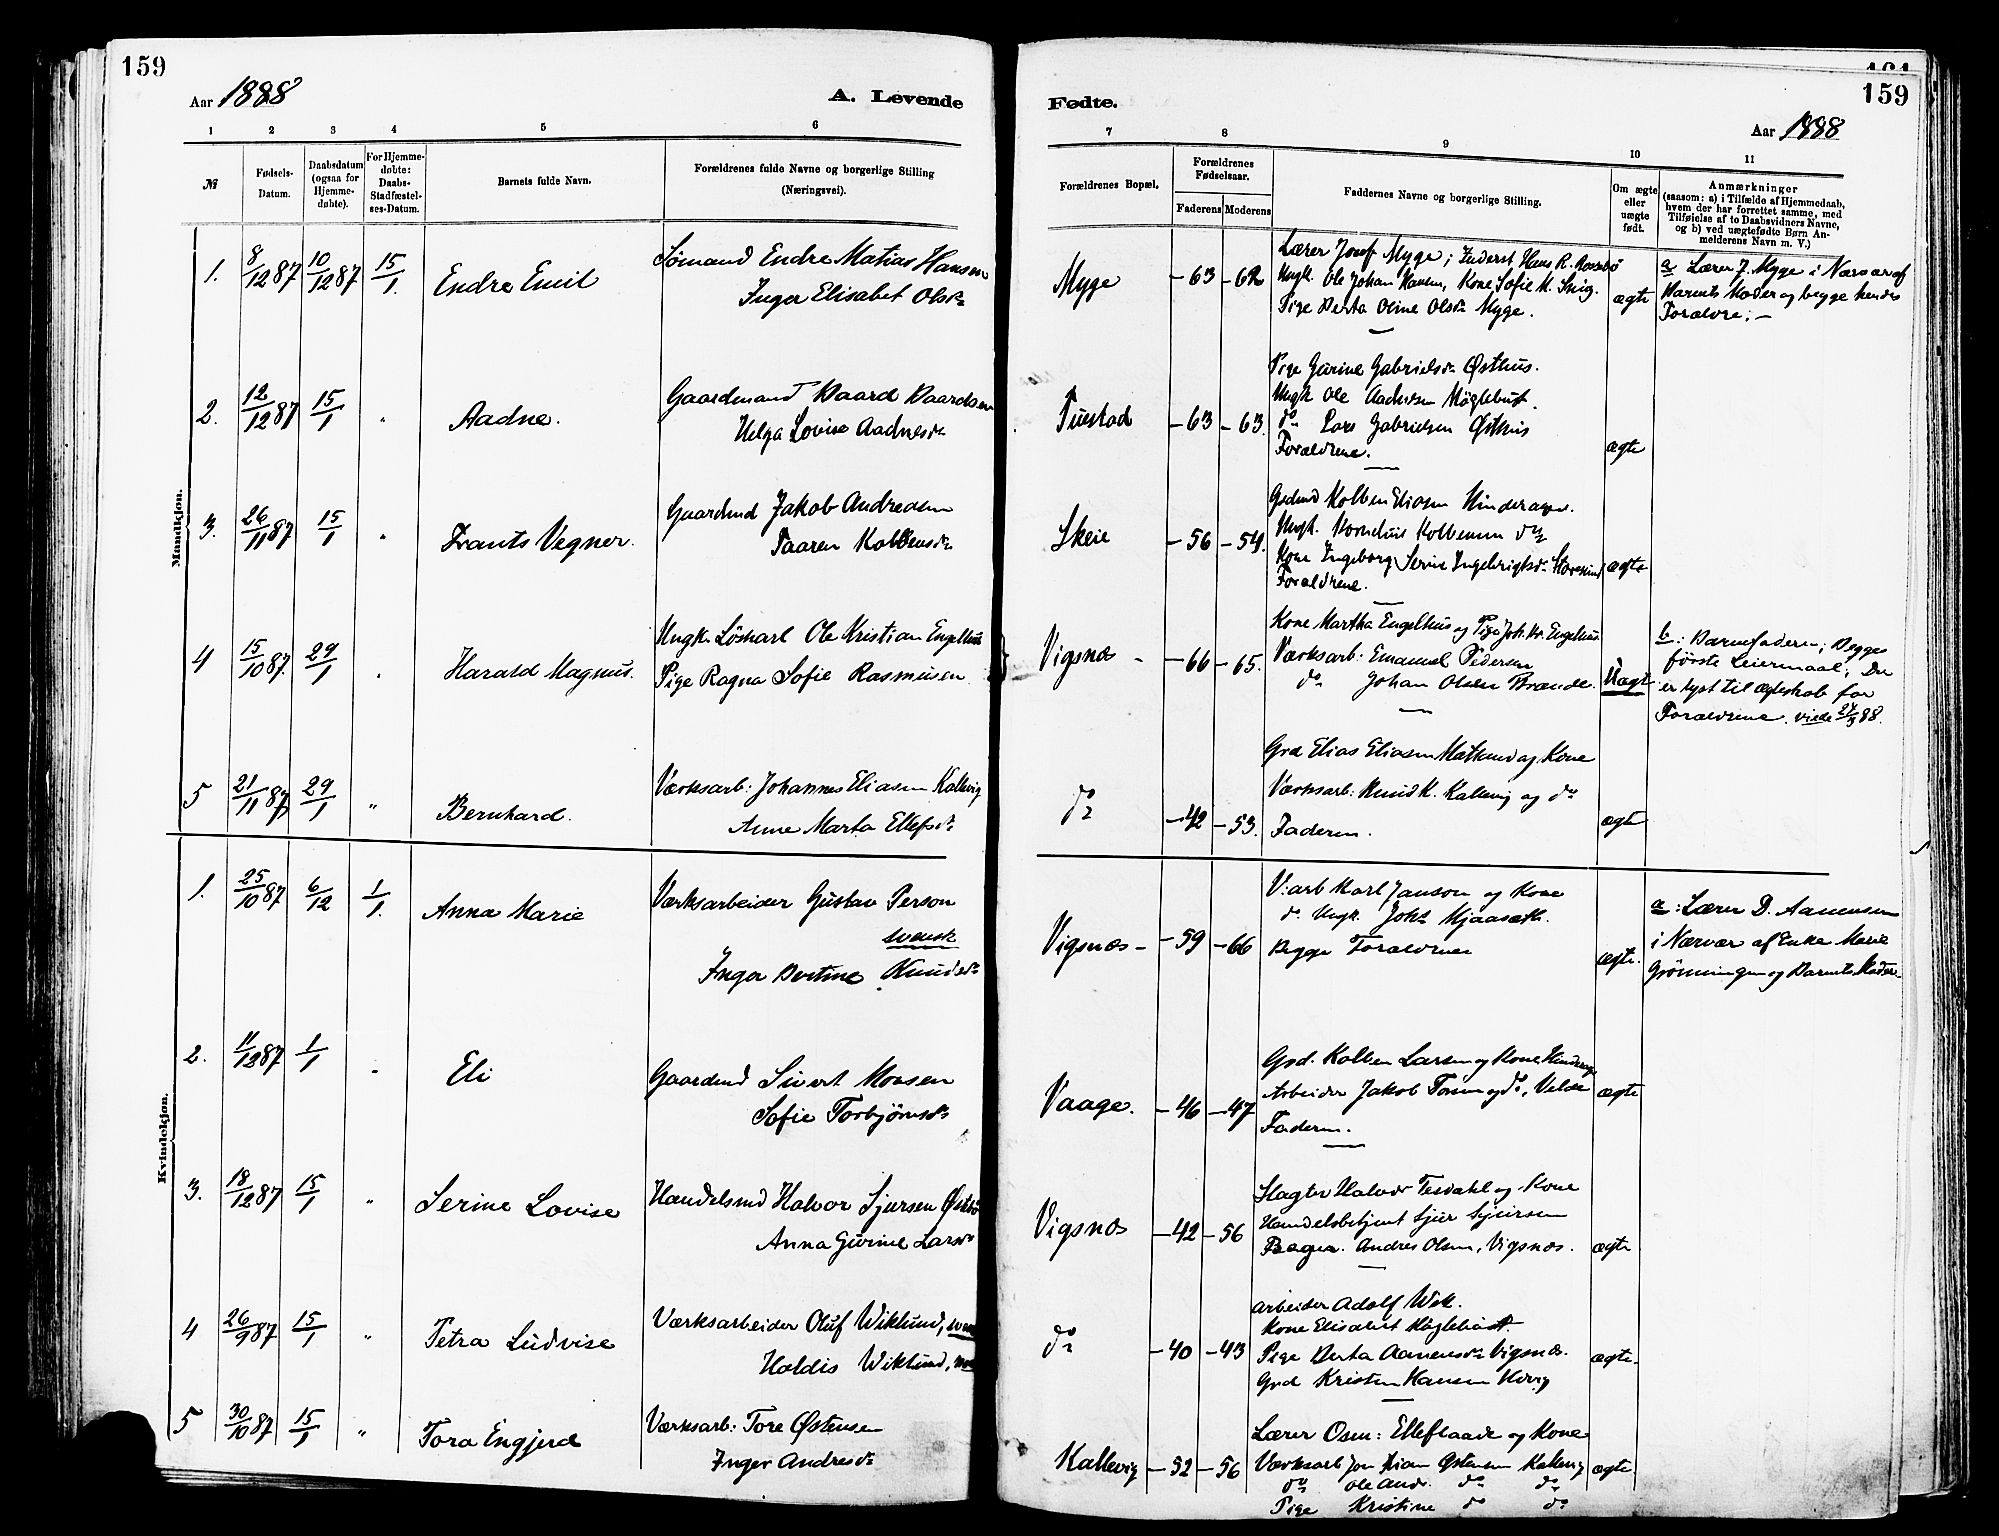 159
Aar 1888
A. Levende
1 2 3 4 5 6
№
Fødsels-Datum.
Daabsdatum (ogsaa for Hjemme-døbte).
For Hjemme-døbte: Daabs-Stadfæstel-ses-Datum.
Barnets fulde Navn.
Forældrenes fulde Navne og borgerlige Stilling (Næringsvei).
Mandkjøn.
1. 8/12 87 10/12 87 15/1. Endre Emil
Sømand Endre Matias Hansen
Inger Elisabet Olsdr
2. 12/12 87 15/1 " Aadne.
Gaardmand Baard Baardsen
Helga Lovise Aadnesdr
3. 26/11 87 15/1 " Frants Vegner.
Gaardmd Jakob Andreasen
Taaren Kolbensdr
4 15/10 87. 29/1 " Harald Magnus.
Ungk. Løskarl Ole Kristian Engelhus
Pige Ragna Sofie Rasmusen
5 21/11 87 29/1 " Bernhard.
Værksarb: Johannes Eliasen Kallevig
Anne Marta Ellefsdr
Kvindekjøn.
1. 25/10 87 6/12 1/1. Anna Marie
Værksarbeider Gustav Person
svensk
Inger Bertine Knudsdr
2. 11/12 87 1/1 " Eli
Gaardmd Sivert Monsen
Sofie Torbjørnsdr
3. 18/12 87 15/1 " Serine Lovise
Handelsmd Halvor Sjursen Østbø
Anna Gurine Larsdr
4 26/9 87 15/1 " Petra Ludvise
Værksarbeider Oluf Wiklund,
Haldis Wiklund,
5 30/10 87 15/1 " Tora Engjerd
Værksarb: Tore Østensen
Inger Andresdr
159
Fødte.
Aar 1888
7 8 9 10 11
Forældrenes Bopæl.
Forældrenes Fødselsaar.
Faderens Moderens
Faddernes Navne og borgerlige Stilling.
Om ægte eller uægte født.
Anmærkninger
(saasom: a) i Tilfælde af Hjemmedaab, hvem der har forrettet samme, med Tilføielse af to Daabsvidners Navne, og b) ved uægtefødte Børn Anmelderens Navn m. V.)
Myge -63 -62
Lærer Josef Myge; Inderst Hans R.
Ungk. Ole Johan Hansen, Kone Sofie M.
Pige Berta Oline Olsdr Myge.
ægte
a Lærer J. Myge i Nærvær af
Barnets Moder og begge hendes
Forældre; -
Tuestad -63 -63.
Pige Gurine Gabrielsdr Østhus.
Ungk Ole Aadnesen Møglebust.
do Lars Gabrielsen Østhus
Forældrene.
ægte
Skeie -56 -54.
Grdmd Kolben Eliasen Hinderager.
Ungk. Kornelius Kolbensen do
Kone Ingeborg Serine Ingebrigtsdr
Forældrene.
ægte
Vigsnæs -66 -65.
Kone Martha Engelhus og Pige Joh. Engelhus
Værksarb: Emanuel Pedersen
do Johan Olsen Brande.
Uægte
b: Barnefaderen; Begges
første Leiermaal; Der
er lyst til Ægteskab for
Forældrene. viede 27/3 88.
do -42 -53.
Grd Elias Eliasen Matland og Kone
Værksarb: Knud K. Kallevig og do
Faderen.
ægte
Vigsnæs -59 -66
V:arb Karl Janson og Kone
do Ungk. Johs Mjaaseth.
Begge Forældrene
ægte.
a: Lærer D. Aanensen
i Nærvær af Enke Marie
Grønningen og Barnets Moder.
Vaage. -46 -47
Grd. Kolben Larsen og Kone Hinderage
Arbeider Jakob Torsen og do, Velde
Faderen.
ægte
Vigsnæs -42 -56
Slagter Halvor Tesdahl og Kone
Handelsbetjent Sjur Sjursen
Bager. Andres Olsen, Vigsnæs.
ægte
do -40 -43
Arbeider Adolf Wik.
Kone Elisabet Møglebust.
Pige Berta Aanensdr Vigsnæs.
Grd Kristen Hansen
ægte.
Kallevig -52 -56
Lærer Osm: Elleflaade og Kone
Værksarb Jon Østensen Kallevig
do Ole And. do do
Pige Kristine do do
ægte.